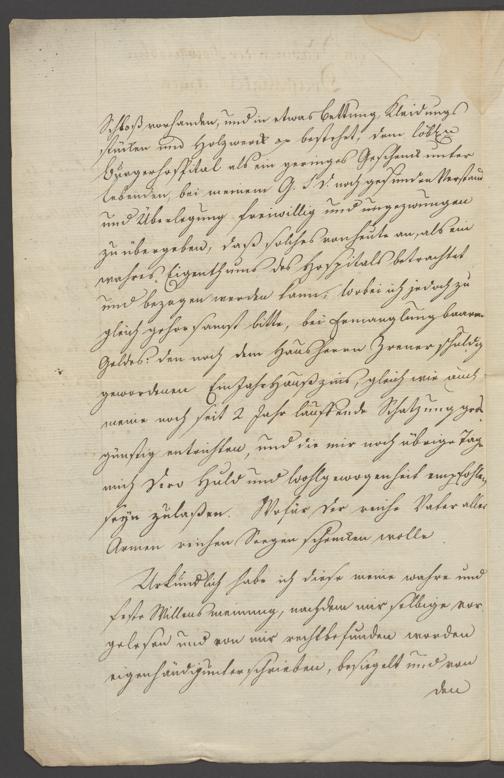 Schloß vorhanden, und in etwas Bettung, Kleidungs
stücken und Holzwerck pp bestehet, dem löbl.
Bürgerhospital als ein geringes Geschenk unter
lebenden, bei meinem G. S. D. noch gesunden Verstand
und Überlegung freiwillig und ungezwungen
zu übergeben, daß solches von heute an, als ein
wahres Eigenthums des Hospitals betrachtet
und bezogen werden kann; Wobei ich jedoch zu
gleich gehorsamst bitte, bei Ermanglung baaren
Geldes: den noch dem Hausherrn Zrener schuldig
gewordenen Einjahr Haußzins, gleich wie auch
meine noch seit 2 Jahr lauffende Schatzung groß
günstig entrichten, und die mir noch übrige Tage
mich Dero Huld und Wohlgewogenheit empfohlen
seyn zulaßen. Wofür der reiche Vater aller
Armen reichen Seegen schencken wolle.
Urkundlich habe ich diese meine wahre und
feste Willens meinung, nachdem mir selbige vor
gelesen und von mir recht befunden worden
eigenhändig unterschrieben, besiegelt und von
den